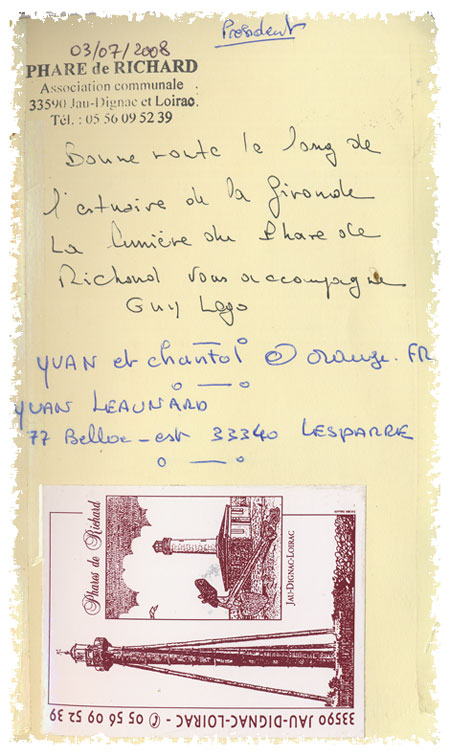 Président
03/07/2008
PHARE de RICHARD
Association communale
33590 Jau-Dignac et Loirac.
Tél. : 05 56 09 52 39
Bonne route le long de
l'estuaire de la Gironde
La lumière du Phare de
Richard vous accompagne
Guy Lago
YVAN et chantal @ orange.FR
YVAN LEAUNARD
77 Belloc-est 33340 LESPARRE
Phares de Richard
JAU-DIGNAC-LOIRAC
33590 JAU-DIGNAC-LOIRAC - ✆ 05 56 09 52 39